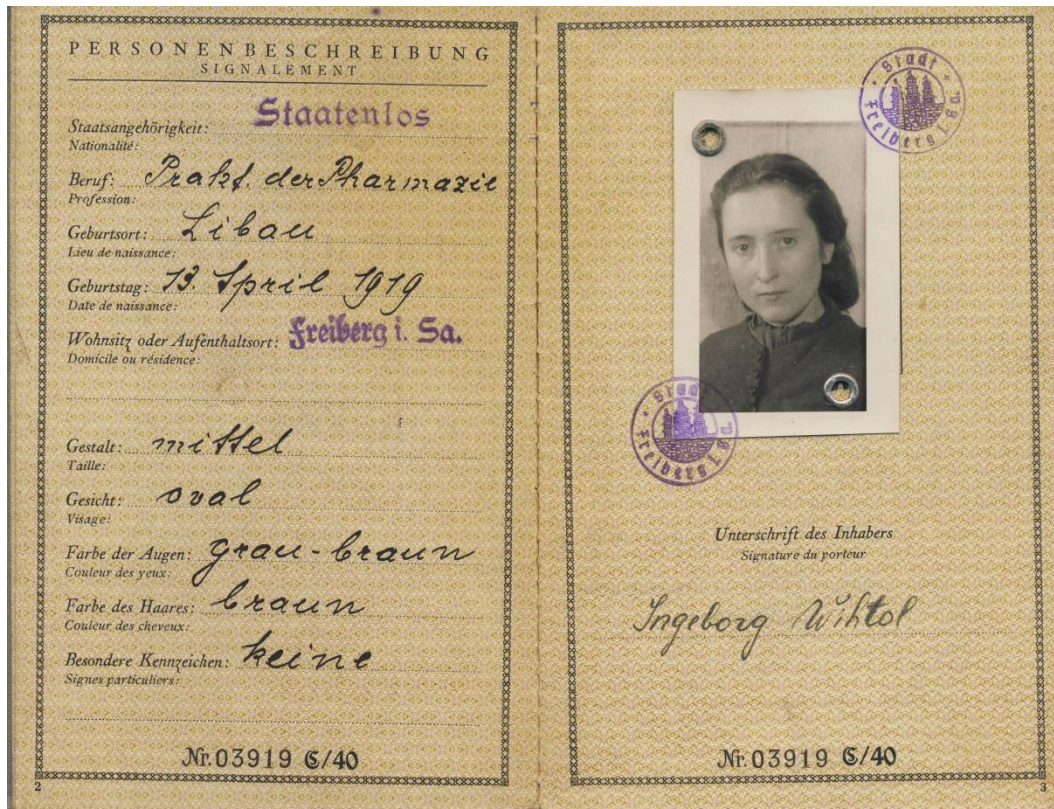 PERSONENBESCHREIBUNG
SIGNALEMENT
Staatsangehörigkeit: Staatenlos
Nationalité:
Beruf: Prakt. der Pharmazie
Profession:
Geburtsort: Libau
Lieu de naissance:
Geburtstag: 13. April 1919
Date de naissance:
Wohnsitz oder Aufenthaltsort: Freiberg i. Sa.
Domicile ou résidence:
Gestalt: mittel
Taille:
Gesicht: oval
Visage:
Farbe der Augen: grau-braun
Couleur des yeux:
Farbe des Haares: braun
Couleur des cheveux:
Besondere Kennzeichen: keine
Signes particuliers:
Nr. 03919 C/40
2
Stadt
Freiberg i. Sa.
Stadt
Freiberg i. Sa.
Unterschrift des Inhabers
Signature du porteur
Ingeborg Wihtol
Nr. 03919 C/40
3